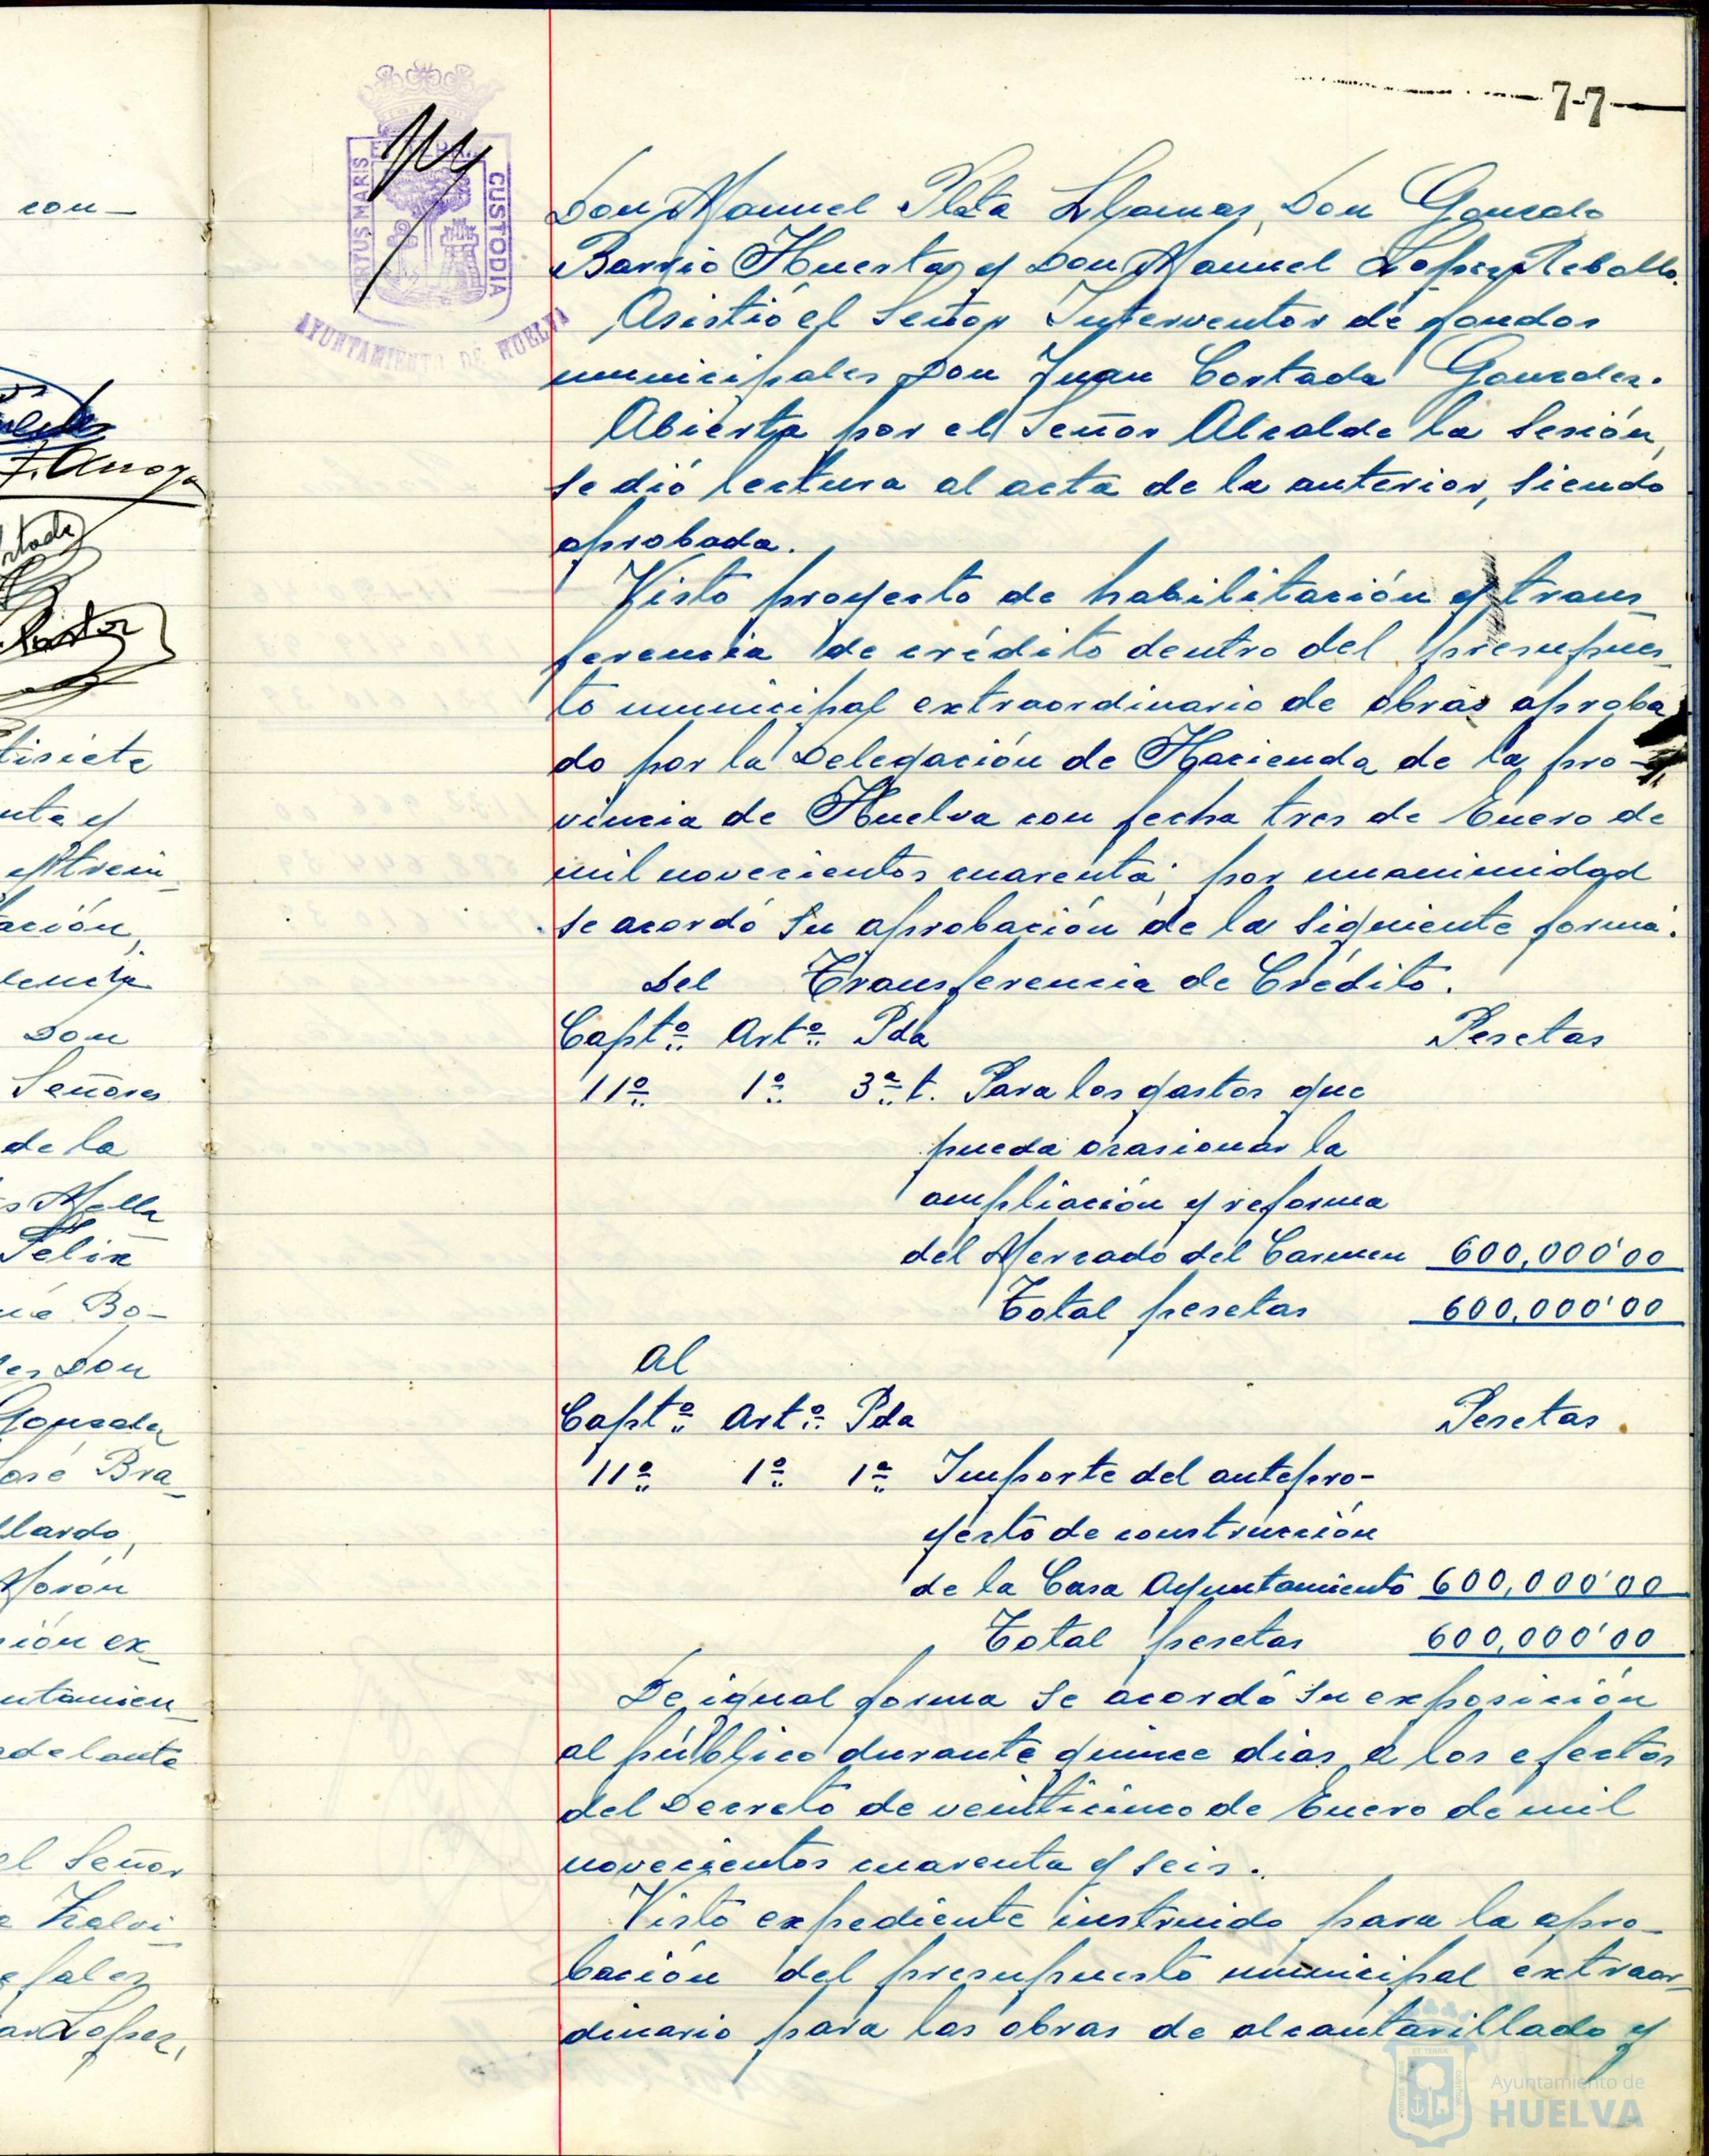 77
PORTUS MARIS
CUSTODIA
AYUNTAMIENTO DE HUELVA
Don Manuel Plata Llamas, Don Gonzalo
Barrio Huerta y Don Manuel Lopez Rebollo.
Asistió el Señor Interventor de fondos
municipales Don Juan Cortada Gonzalez.
Abierta por el Señor Alcalde la Sesión,
se dió lectura al acta de la anterior, siendo
aprobada.
Visto proyecto de habilitación y trans-
ferencia de crédito dentro del presupues-
to municipal extraordinario de obras aproba
do por la Delegación de Hacienda de la pro-
vincia de Huelva con fecha tres de Enero de
mil novecientos cuarenta; por unanimidad
se acordó su aprobación de la siguiente forma:
Del Transferencia de Crédito.
Captº Artº Pda Pesetas
11º 1º 3ª t. Para los gastos que
pueda ocasionar la
ampliación y reforma
del Mercado del Carmen 600,000'00
Total pesetas 600,000'00
Al
Captº Artº Pda Pesetas.
11º 1º 1ª Importe del antepro-
yecto de construcción
de la Casa Ayuntamiento 600,000'00
Total pesetas 600,000'00
De igual forma se acordó su exposición
al público durante quince dias a los efectos
del Decreto de veinticinco de Enero de mil
novecientos cuarenta y seis.
Visto expediente instruido para la apro-
bación del presupuesto municipal extraor-
dinario para las obras de alcantarillado y
Ayuntamiento de
HUELVA
con-
F. Arroyo
tisiete
nta y
y trein-
ación,
lencia
Don
Señores
de la
s Molla
Felix
Bo-
es Don
Gonzalez
José Bra-
llardo,
Morón
ión ex-
untamien-
adelante
el Señor
Lopez,